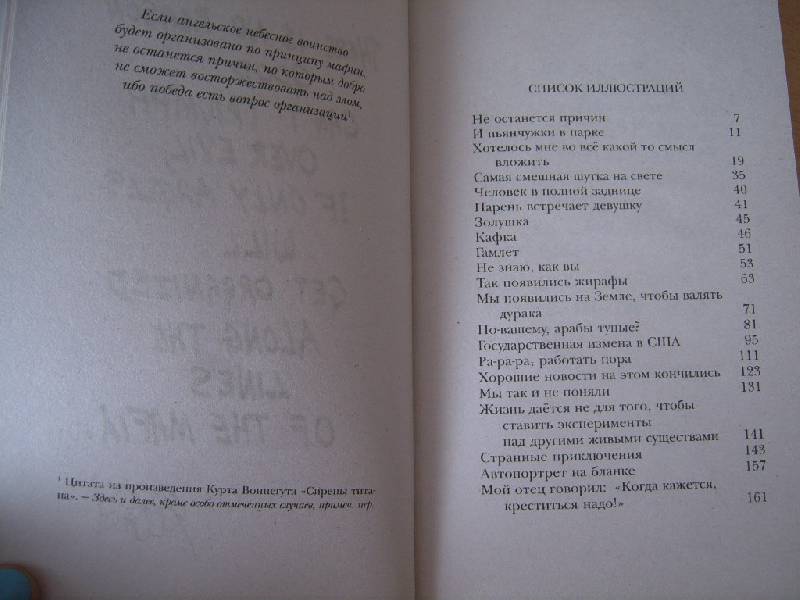 Если ангельское небесное воинство
будет организовано по принципу мафии,
не останется причин, по которым добро
не сможет восторжествовать над злом,
ибо победа есть вопрос организации¹.
OVER EVIL,
IF ONLY
WILL
GET ORGANIZED
ALONG THE
LINES
OF THE MAFIA.
¹ Цитата из произведения Курта Воннегута «Сирены тита-
на». — Здесь и далее, кроме особо отмеченных случаев, примеч. пер.
СПИСОК ИЛЛЮСТРАЦИЙ
Не останется причин 7
И пьянчужки в парке 11
Хотелось мне во всё какой то смысл
вложить 19
Самая смешная шутка на свете 35
Человек в полной заднице 40
Парень встречает девушку 41
Золушка 45
Кафка 46
Гамлет 51
Не знаю, как вы 53
Так появились жирафы 63
Мы появились на Земле, чтобы валять
дурака 71
По-вашему, арабы тупые? 81
Государственная измена в США 95
Ра-ра-ра, работать пора 111
Хорошие новости на этом кончились 123
Мы так и не поняли 131
Жизнь даётся не для того, чтобы
ставить эксперименты
над другими живыми существами 141
Странные приключения 143
Автопортрет на бланке 157
Мой отец говорил: «Когда кажется,
креститься надо!» 161